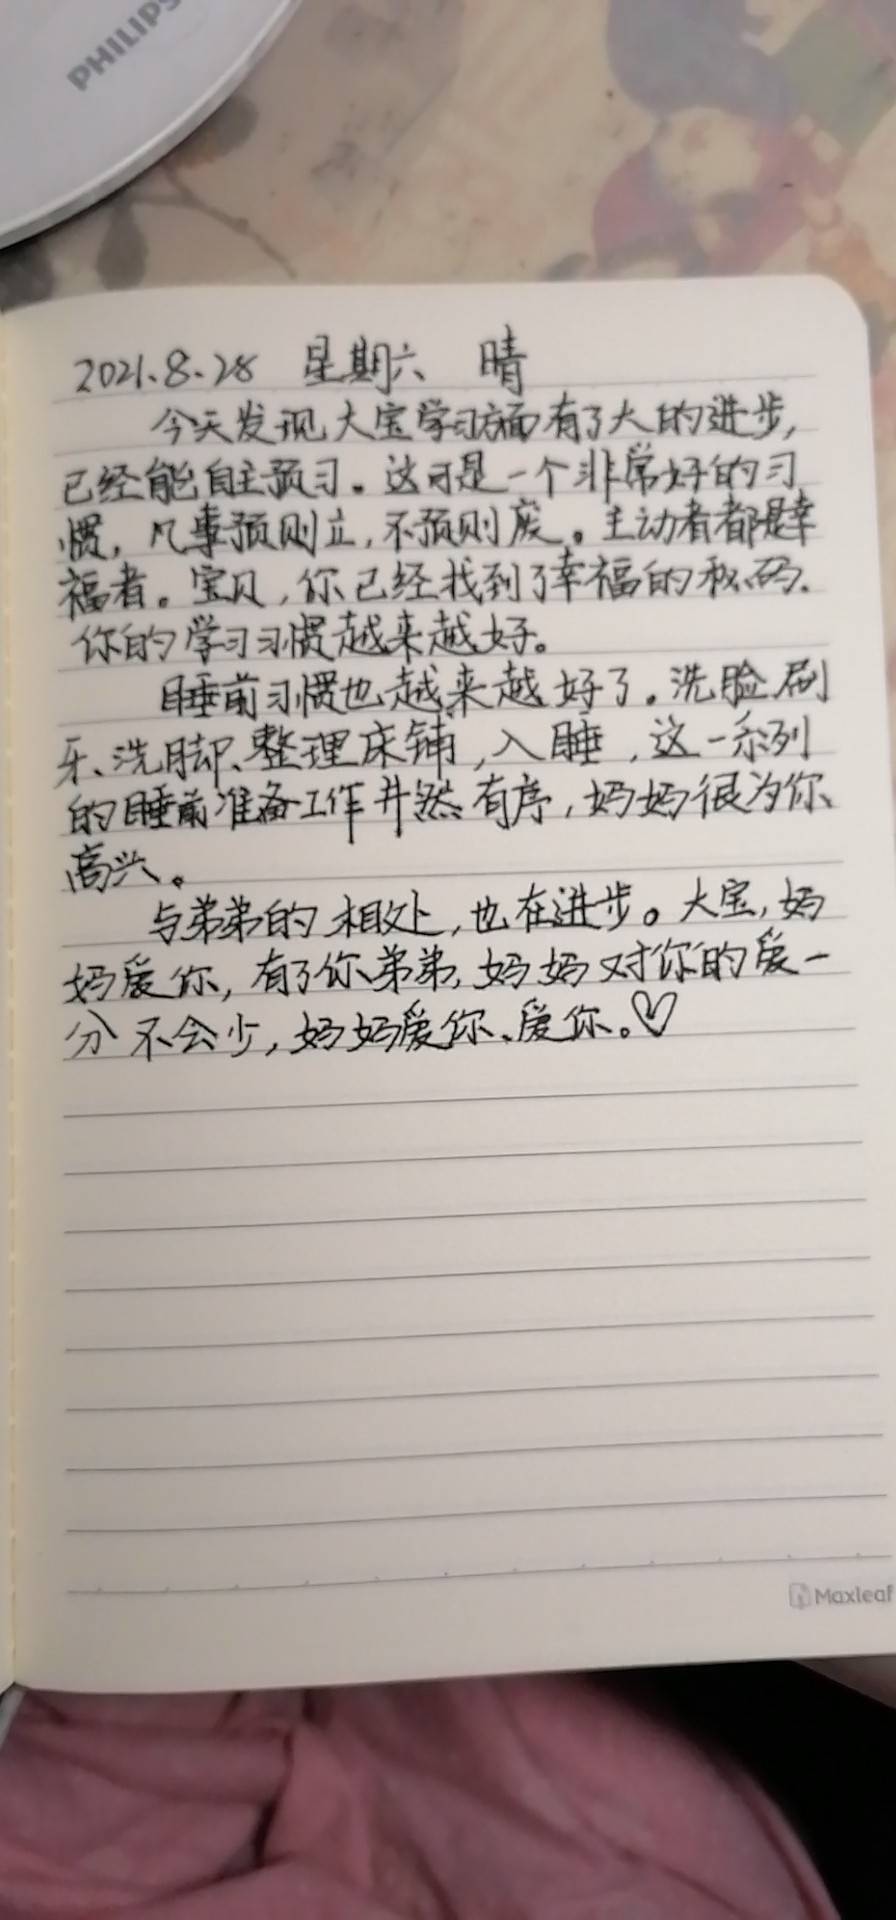 PHILIPS
2021.8.28 星期六 晴
今天发现大宝学习方面有了大的进步,
已经能自主预习。这可是一个非常好的习
惯,凡事预则立,不预则废。主动者都是幸
福者。宝贝,你已经找到了幸福的秘码.
你的学习习惯越来越好。
睡前习惯也越来越好了。洗脸刷
牙、洗脚、整理床铺,入睡,这一系列
的睡前准备工作井然有序,妈妈很为你
高兴。
与弟弟的相处,也在进步。大宝,妈
妈爱你,有了你弟弟,妈妈对你的爱一
分不会少,妈妈爱你、爱你。♡
Maxleaf